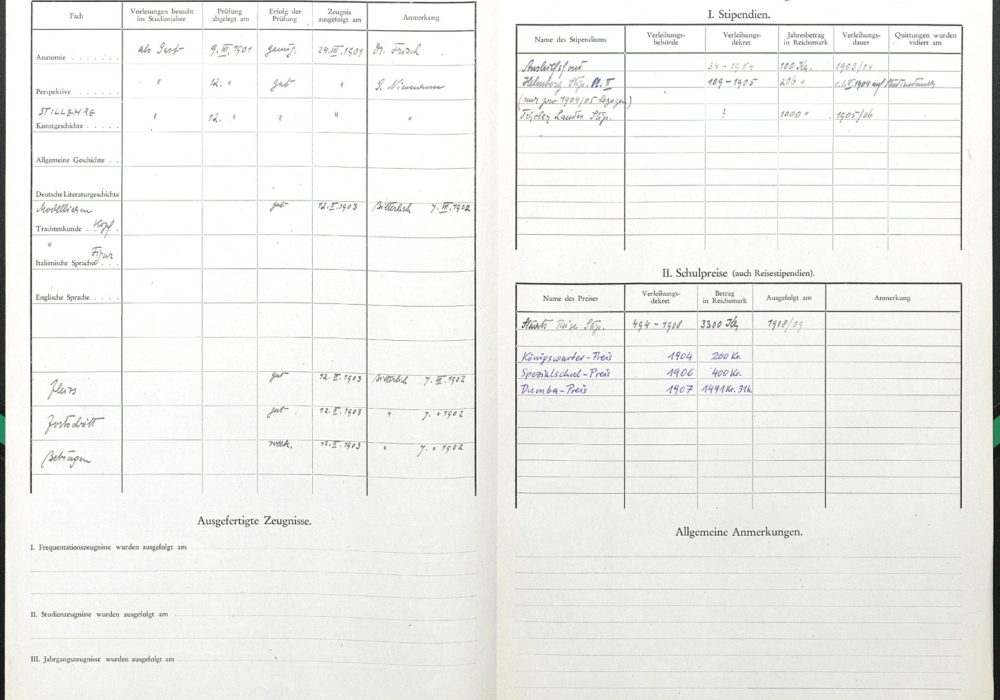 Fach Vorlesungen besucht im Studienjahre Prüfung abgelegt am Erfolg der Prüfung Zeugnis ausgefolgt am Anmerkung
Anatomie als Gast 9. III. 1901 genüg. 24. III. 1901 Dr. Frisch
Perspektive " 12. " gut " G. Niemann
STILLEHRE
Kunstgeschichte " 12. " " " "
Allgemeine Geschichte
Deutsche Literaturgeschichte
Modellieren gut 12. 1903 Bitterlich 7. III. 1902
Trachtenkunde Kopf
" Figur
Italienische Sprache
Englische Sprache
Fleiss gut 12. 1903 Bitterlich 7. III. 1902
Fortschritt gut 12. 1903 " 7. " 1902
Betragen 12. 1903 " 7. " 1902
Ausgefertigte Zeugnisse.
I. Frequentationszeugnisse wurden ausgefolgt am
II. Studienzeugnisse wurden ausgefolgt am
III. Jahrgangszeugnisse wurden ausgefolgt am
I. Stipendien.
Name des Stipendiums Verleihungs-behörde Verleihungs-dekret Jahresbetrag in Reichsmark Verleihungs-dauer Quittungen wurden vidiert am
34 - 1904 100 Kr. 1903/04
Stip. Pl. II 109 - 1905 206 " 1904 auf Studiendauer
(nur pro 1904/05 bezogen)
Tiroler Landes Stip. ? 1000 " 1905/06
II. Schulpreise (auch Reisestipendien).
Name des Preises Verleihungs-dekret Betrag in Reichsmark Ausgefolgt am Anmerkung
Staats Reise Stip. 494 - 1908 3300 Kr. 1908/09
Königswarter-Preis 1904 200 Kr.
Spezialschul-Preis 1906 400 Kr.
Dumba-Preis 1907 1491 Kr. 31h
Allgemeine Anmerkungen.